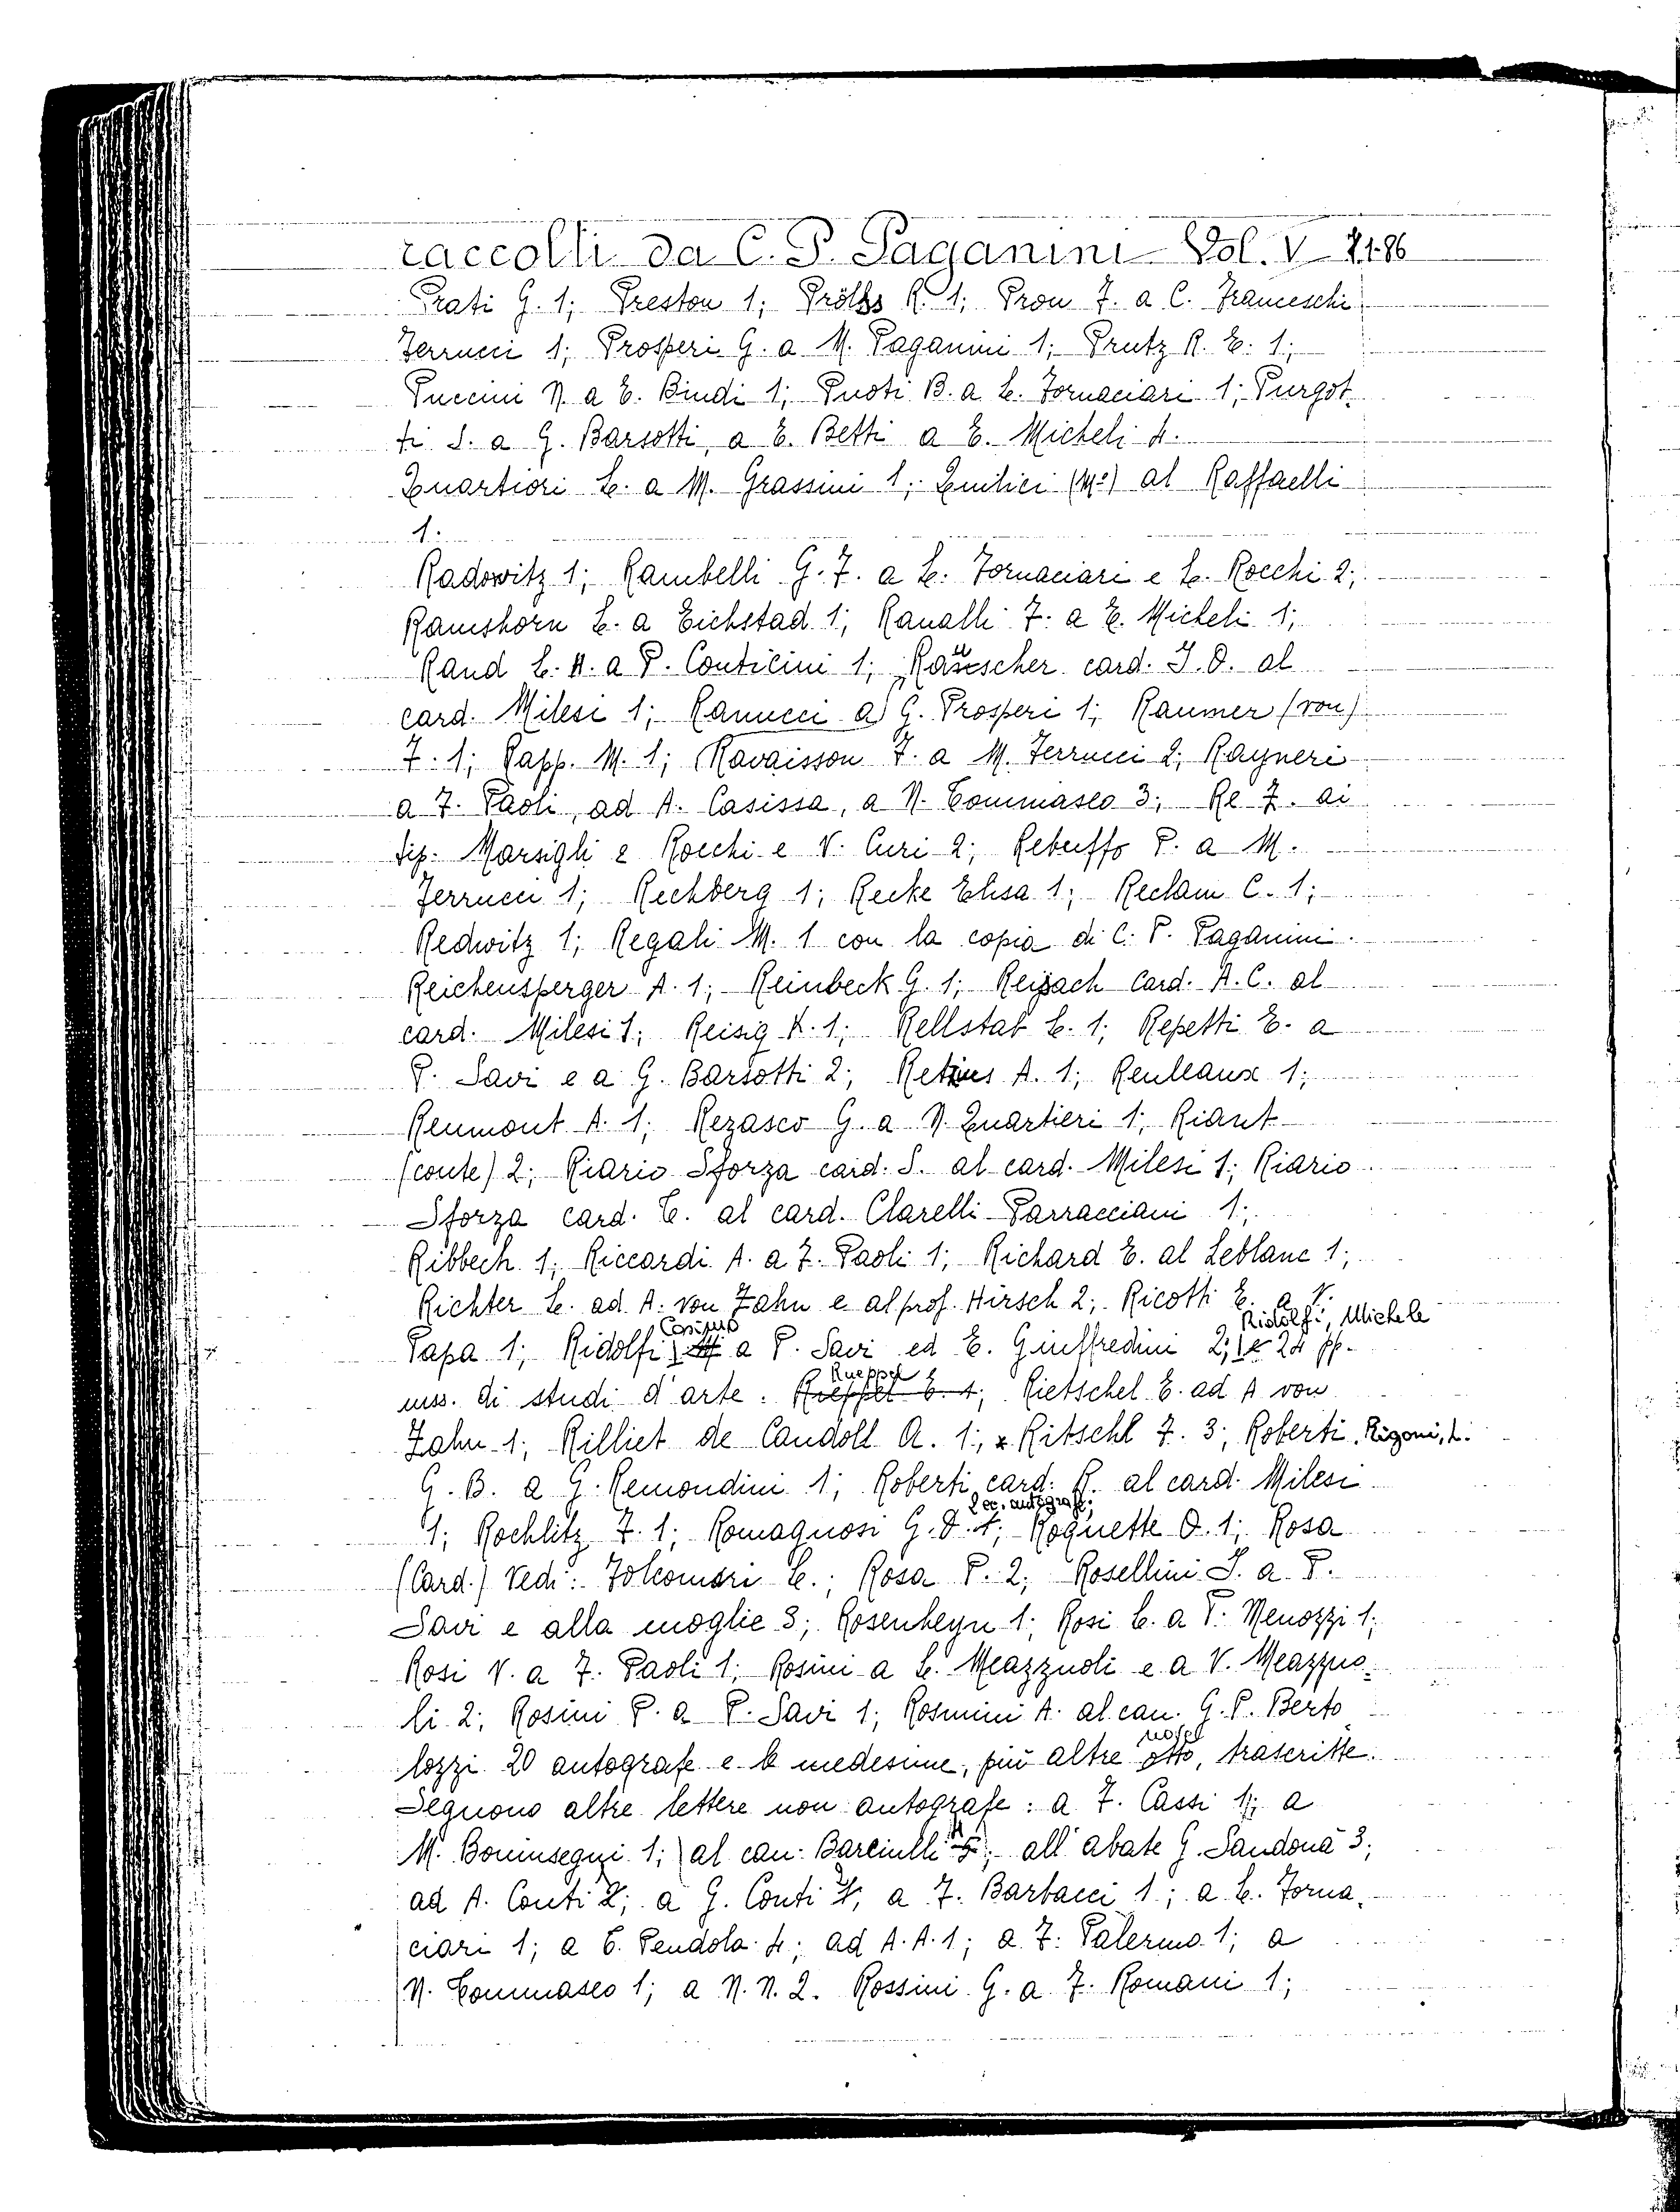 raccolti da C. P. Paganini Vol. V 2186
Prati G. 1; Preston 1; Prölss R. 1; Prou F. a C. Franceschi
Ferrucci 1; Prosperi G. a M. Paganini 1; Prutz R. E. 1;
Puccini N. a E. Bindi 1; Puoti B. a L. Fornaciari 1; Purgot-
ti S. a G. Barsotti, a E. Betti a E. Micheli 4.
Quartiori L. a M. Grassini 1; Quilici (Mc) al Raffaelli
1.
Radowitz 1; Rambelli G. F. a L. Fornaciari e L. Rocchi 2;
Ramshorn L. a Eichstad 1; Ranalli F. a E. Micheli 1;
Rand B. H. a P. Conticini 1; Rauscher card. J. O. al
card. Milesi 1; Ranucci a G. Prosperi 1; Raumer (von)
F. 1; Rapp. M. 1; Ravaisson F. a M. Ferrucci 2; Rayneri
a F. Paoli, ad A. Casissa, a N. Tommaseo 3; Re F. ai
tip. Marsigli e Rocchi e V. Curi 2; Rebuffo P. a M.
Ferrucci 1; Rechberg 1; Recke Elisa 1; Reclam C. 1;
Redwitz 1; Regali M. 1 con la copia di C. P. Paganini.
Reichensperger A. 1; Reinbeck G. 1; Reisach Card. A. C. al
card. Milesi 1; Reisig K. 1; Rellstab L. 1; Repetti E. a
P. Savi e a G. Barsotti 2; Retzius A. 1; Reuleaux 1;
Reumont A. 1; Rezasco G. a N. Quartieri 1; Riant
(conte) 2; Riario Sforza card. S. al card. Milesi 1; Riario
Sforza card. T. al card. Clarelli-Parracciani 1;
Ribbeck 1; Riccardi A. a F. Paoli 1; Richard E. al Leblanc 1;
Richter L. ad A. von Zahn e al prof. Hirsch 2; Ricotti E. a V.
Cosimo Ridolfi, Michele
Papa 1; Ridolfi a P. Savi ed E. Giuffredini 2; e 24 pp.
Rueppel
mss. di studi d'arte. Rieffel E. 1; Rietschel E. ad A von
Zahn 1; Rilliet de Candoll A. 1; x Ritschl F. 3; Roberti Rigoni, L.
G. B. a G. Remondini 1; Roberti card. R. al card. Milesi
2 ec. autografi;
1; Rochlitz F. 1; Romagnosi G. D. 1; Roquette O. 1; Rosa
(Card.) Vedi: Folcomari L.; Rosa P. 2; Rosellini I. a P.
Savi e alla moglie 3; Rosenheyn 1; Rosi C. a T. Menozzi 1;
Rosi V. a F. Paoli 1; Rosini a L. Meazzuoli e a V. Meazzuo-
li 2; Rosini P. a P. Savi 1; Rosmini A. al can. G. P. Berto
nove
lozzi 20 autografe e le medesime, più altre otto, trascritte.
Seguono altre lettere non autografe: a F. Cassi 1; a
M. Boninsegni 1; al can. Barciulli 4 5; all'abate G. Sandonà 3;
ad A. Conti 2; a G. Conti 1; a F. Barbacci 1; a L. Forna-
ciari 1; a T. Pendola 4; ad A. A. 1; a F. Palermo 1; a
N. Tommaseo 1; a N. N. 2. Rossini G. a F. Romani 1;